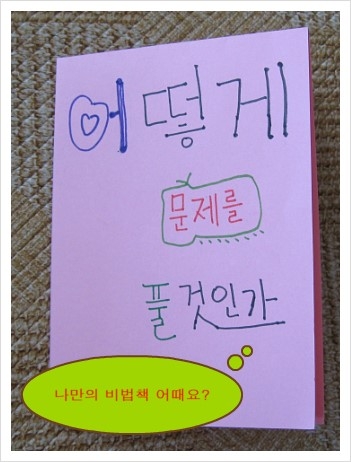 어떻게
문제를
풀것인가
나만의 비법책 어때요?